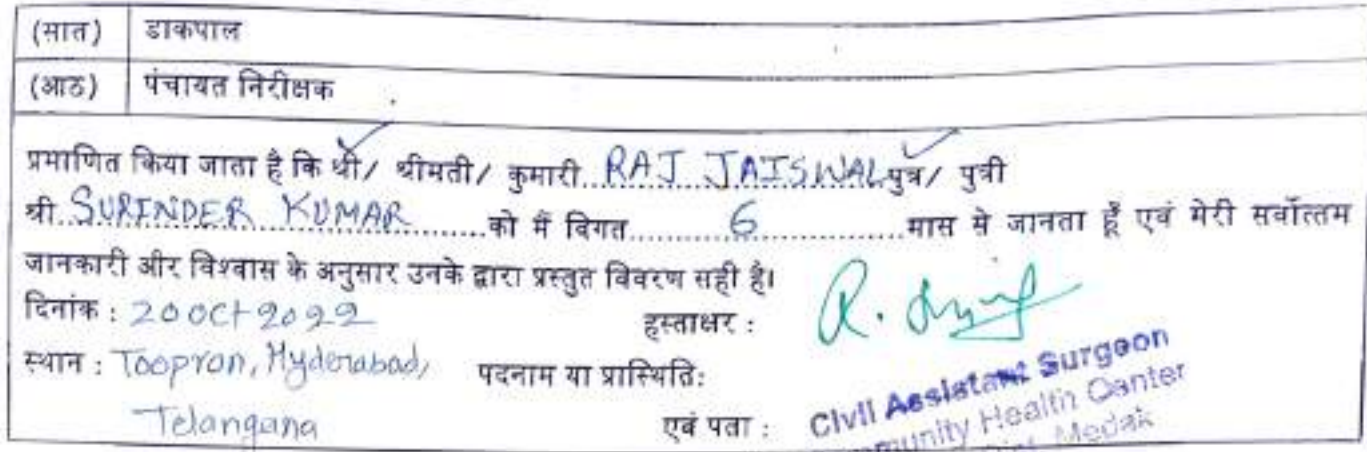 (सात) डाकपाल
(आठ) पंचायत निरीक्षक
प्रमाणित किया जाता है कि श्री/ श्रीमती/ कुमारी RAJ JAISWAL पुत्र/ पुत्री
श्री SURINDER KUMAR को मैं विगत 6 मास से जानता हूँ एवं मेरी सर्वोत्तम
जानकारी और विश्वास के अनुसार उनके द्वारा प्रस्तुत विवरण सही है।
दिनांक : 20 Oct 2022 हस्ताक्षर :
स्थान : Toopran, Hyderabad, पदनाम या प्रास्थिति:
Telangana एवं पता :
Civil Assistant Surgeon
Health Center
Medak